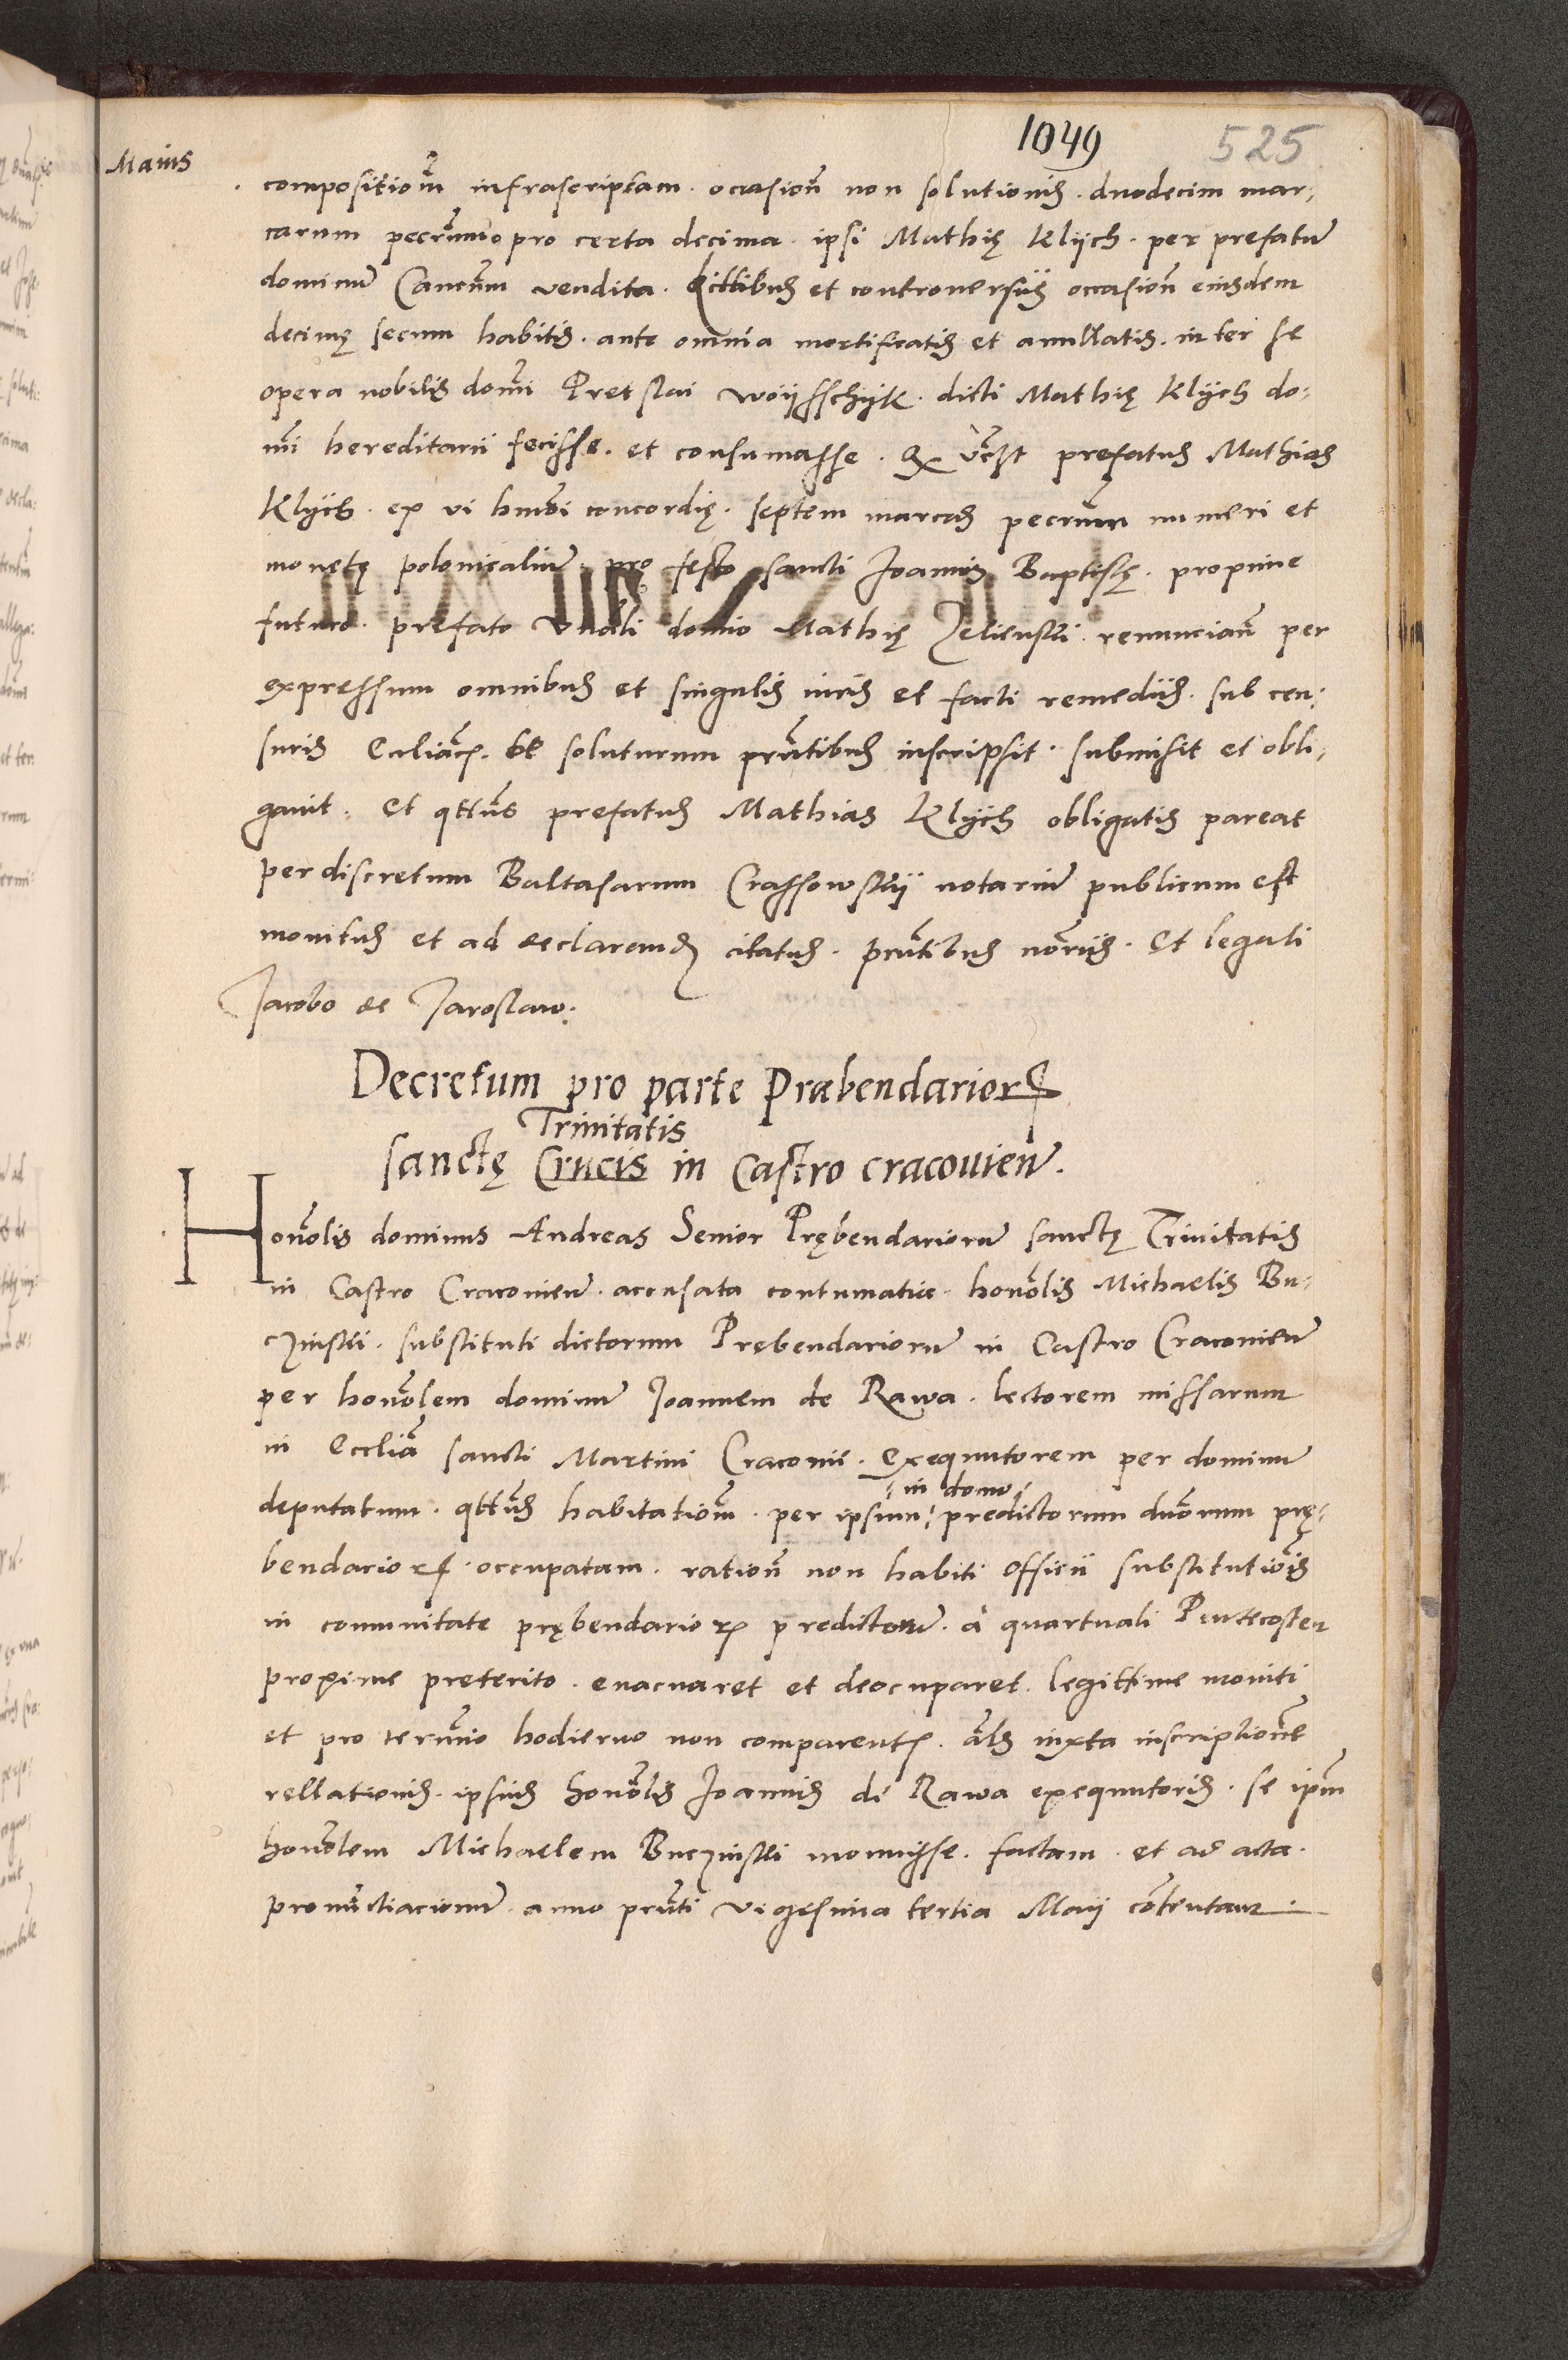 1049 525
Maius
compositionem infrascriptam · occasione non solutionis · duodecim mar-
carum pecunie pro certa decima · ipsi Mathię Klych · per prefatum
dominum Canonicum vendita · littibus et controversiis occasione eiusdem
decimę secum habitis · ante omnia mortificatis et annullatis · inter se
opera nobilis domini Pretslai · dicti Mathię Klych do-
mini hereditarii fecisse · et consumasse · prefatus Mathias
Klych · ex vi huiusmodi concordię · septem marcas pecunie numeri et
monetę polonicalium · pro festo sancti Joannis Baptistę · proxime
futuro · prefato Venerabili domino Mathię Zelienski · renuncians per
expressum omnibus et singulis iuris et facti remediis · sub cen-
suris Eccliasticis · se soluturum presentibus inscripsit · submisit et obli-
gavit · Et quatenus prefatus Mathias Klych obligatis pareat
per discretum Baltasarum Crassowskij notarium publicum est
monitus et ad declarandum citatus · presentibus notariis · Et legati
Jacobo de Jaroslaw ·
Decretum pro parte Præbendariorum
Trinitatis
sanctę Crucis in Castro cracovien ·
Honorabilis dominus Andreas Senior Prębendariorum sanctę Trinitatis
in Castro Cracovien · accusata contumatia · honorabilis Michaelis Bu-
czinski · substituti dictorum Prębendariorum in Castro Cracovien
per honorabilem dominum Joannem de Rawa · lectorem missarum
in Ecclia sancti Martini Cracovii · Exequutorem per dominum
in domo
deputatum · quatenus habitationem · per ipsum predictorum dominorum prę-
bendariorum · occupatam · ratione non habiti officii substitutionis
in comunitate prębendariorum predictorum · a quartuali Pentecosten
proxime preterito · evacuaret et deocuparet · legittime moniti
et pro termino hodierno non comparentis · als iuxta inscriptionem
rellationis · ipsius honorabilis Joannis de Rawa exequutoris · se ipsum
honorabilem Michaelem Buczinski monuisse · factam · et ad acta ·
pronunctiacionum · anno presenti vigesima tertia Maij contentam ·